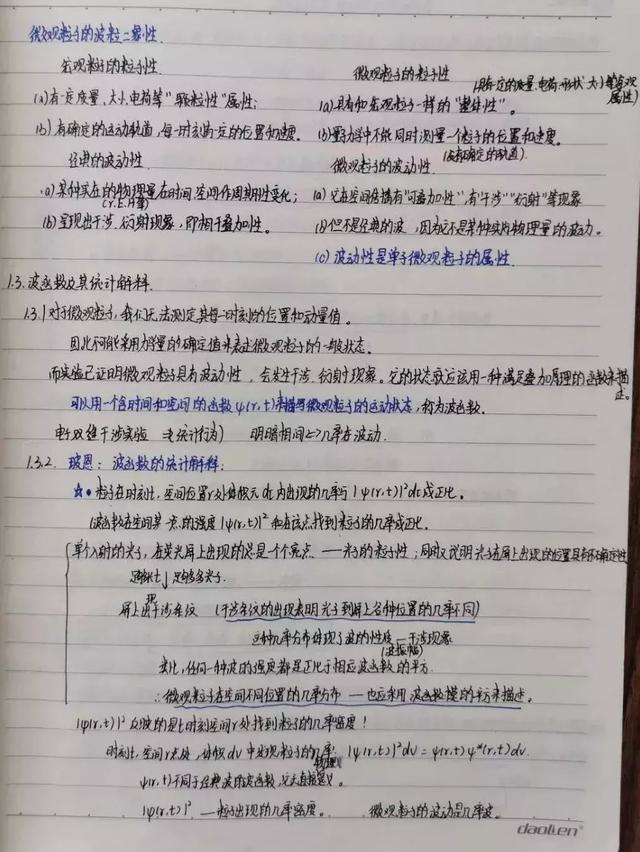 微观粒子的波粒二象性
宏观粒子的粒子性
(a)有一定质量、大小、电荷等"颗粒性"属性;
(b)有确定的运动轨道,每一时刻有一定的位置和速度。
经典的波动性
(a)某种实在的物理量在时间、空间作周期性变化;
(b)呈现出干涉、衍射现象,即相干叠加性。
微观粒子的粒子性
(具有一定的质量、电荷、形状、大小等客观属性)
(a)具有和宏观粒子一样的"整体性"。
(b)量子力学中不能同时测量一个粒子的位置和速度。
(没有确定的轨道)
微观粒子的波动性
(a)它在空间传播有"可叠加性",有"干涉""衍射"等现象
(b)但不是经典的波,因为它不是某种实际物理量的波动。
(c)波动性是单个微观粒子的属性。
1.3.波函数及其统计解释
1.3.1对于微观粒子,我们无法测定其每一时刻的位置和动量值。
因此不可能采用力学量的确定值来表述微观粒子的一般状态。
而实验已证明微观粒子具有波动性,会发生干涉、衍射现象。它的状态就应该用一种满足叠加原理的函数来描述。
可以用一个含时间和空间的函数ψ(r,t)来描写微观粒子的运动状态,称为波函数。
电子双缝干涉实验 统计行为 明暗相间<=>几率在波动.
1.3.2. 玻恩:波函数的统计解释:
☆•粒子在时刻t,空间位置r处体积元dτ内出现的几率与|ψ(r,t)|²dτ成正比。
(波函数在空间某一点的强度|ψ(r,t)|²和在该点找到粒子的几率成正比。
单个入射的光子,在荧光屏上出现的总是一个亮点 ——光子的粒子性;同时又说明光子在屏上出现的位置具有不确定性
足够长t↓足够多光子.
屏上出现干涉条纹 (干涉条纹的出现表明光子到屏上各种位置的几率不同)
这种几率分布体现了波的性质——干涉现象
(波振幅)
类比,任何一种波的强度都是正比于相应波函数的平方.
∴微观粒子在空间不同位置的几率分布——也应采用波函数模的平方来描述。
|ψ(r,t)|²反映的是t时刻空间r处找到粒子的几率密度!
时刻t,空间r点处,体积dv中发现粒子的几率:|ψ(r,t)|²dv=ψ(r,t)ψ*(r,t)dv.
ψ(r,t)不同于经典波的波函数,它无直接物理意义。
|ψ(r,t)|²——粒子出现的几率密度。 微观粒子的波动是几率波。
daolen